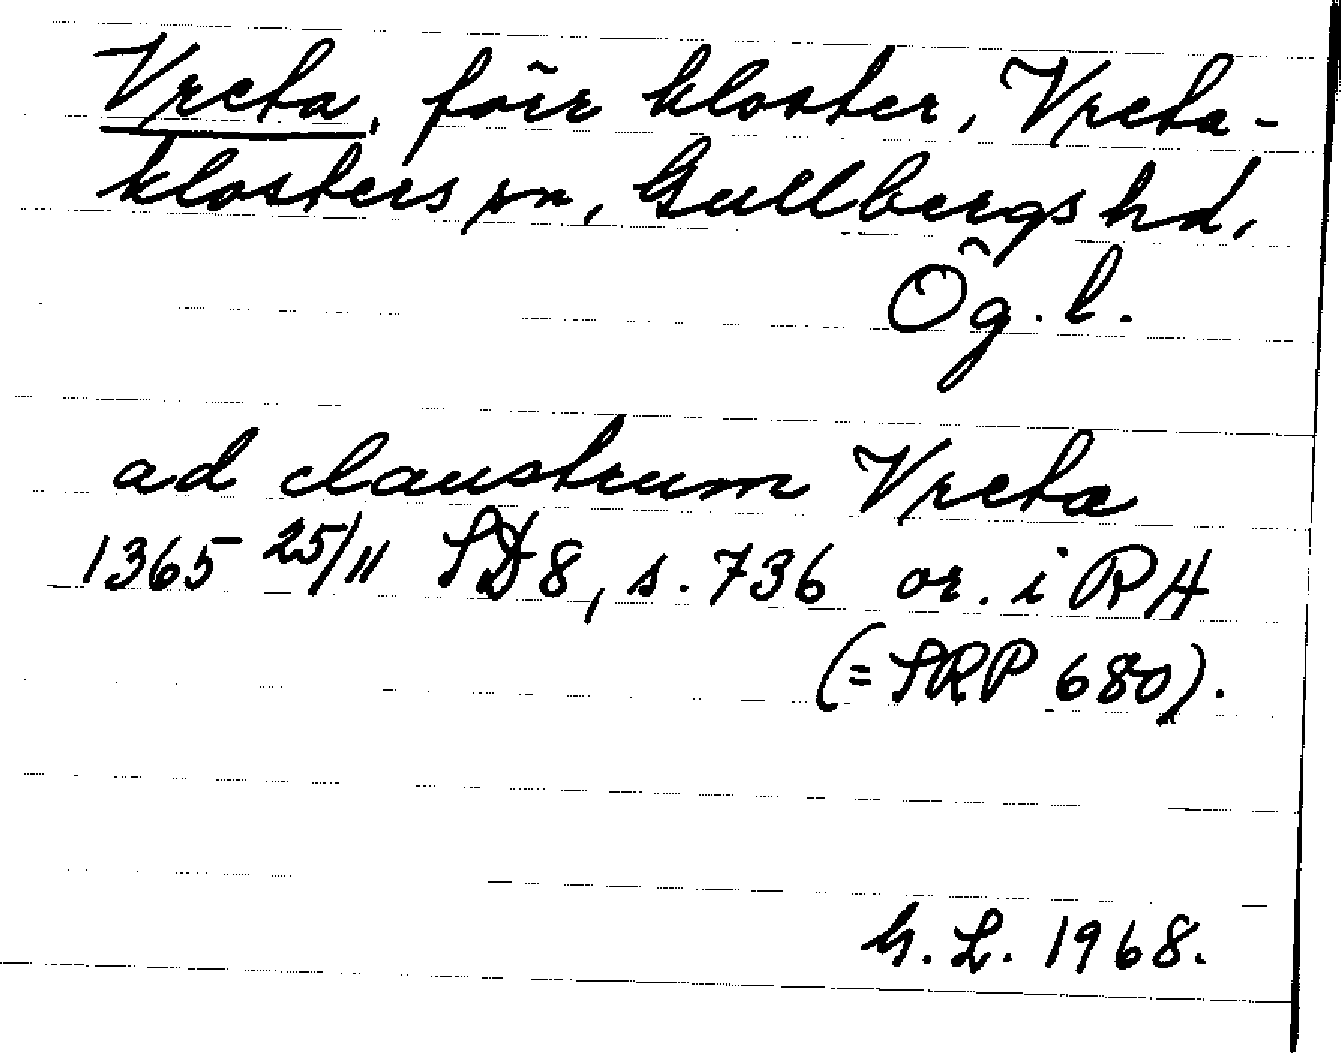 Vreta, förr kloster, Vreta-
klosters sn, Gullbergs hd,
Ög. l.
ad claustrum Vreta
1365 25/11 SD8, s. 736 or. i RA
(= SRP 680).
G. L. 1968.